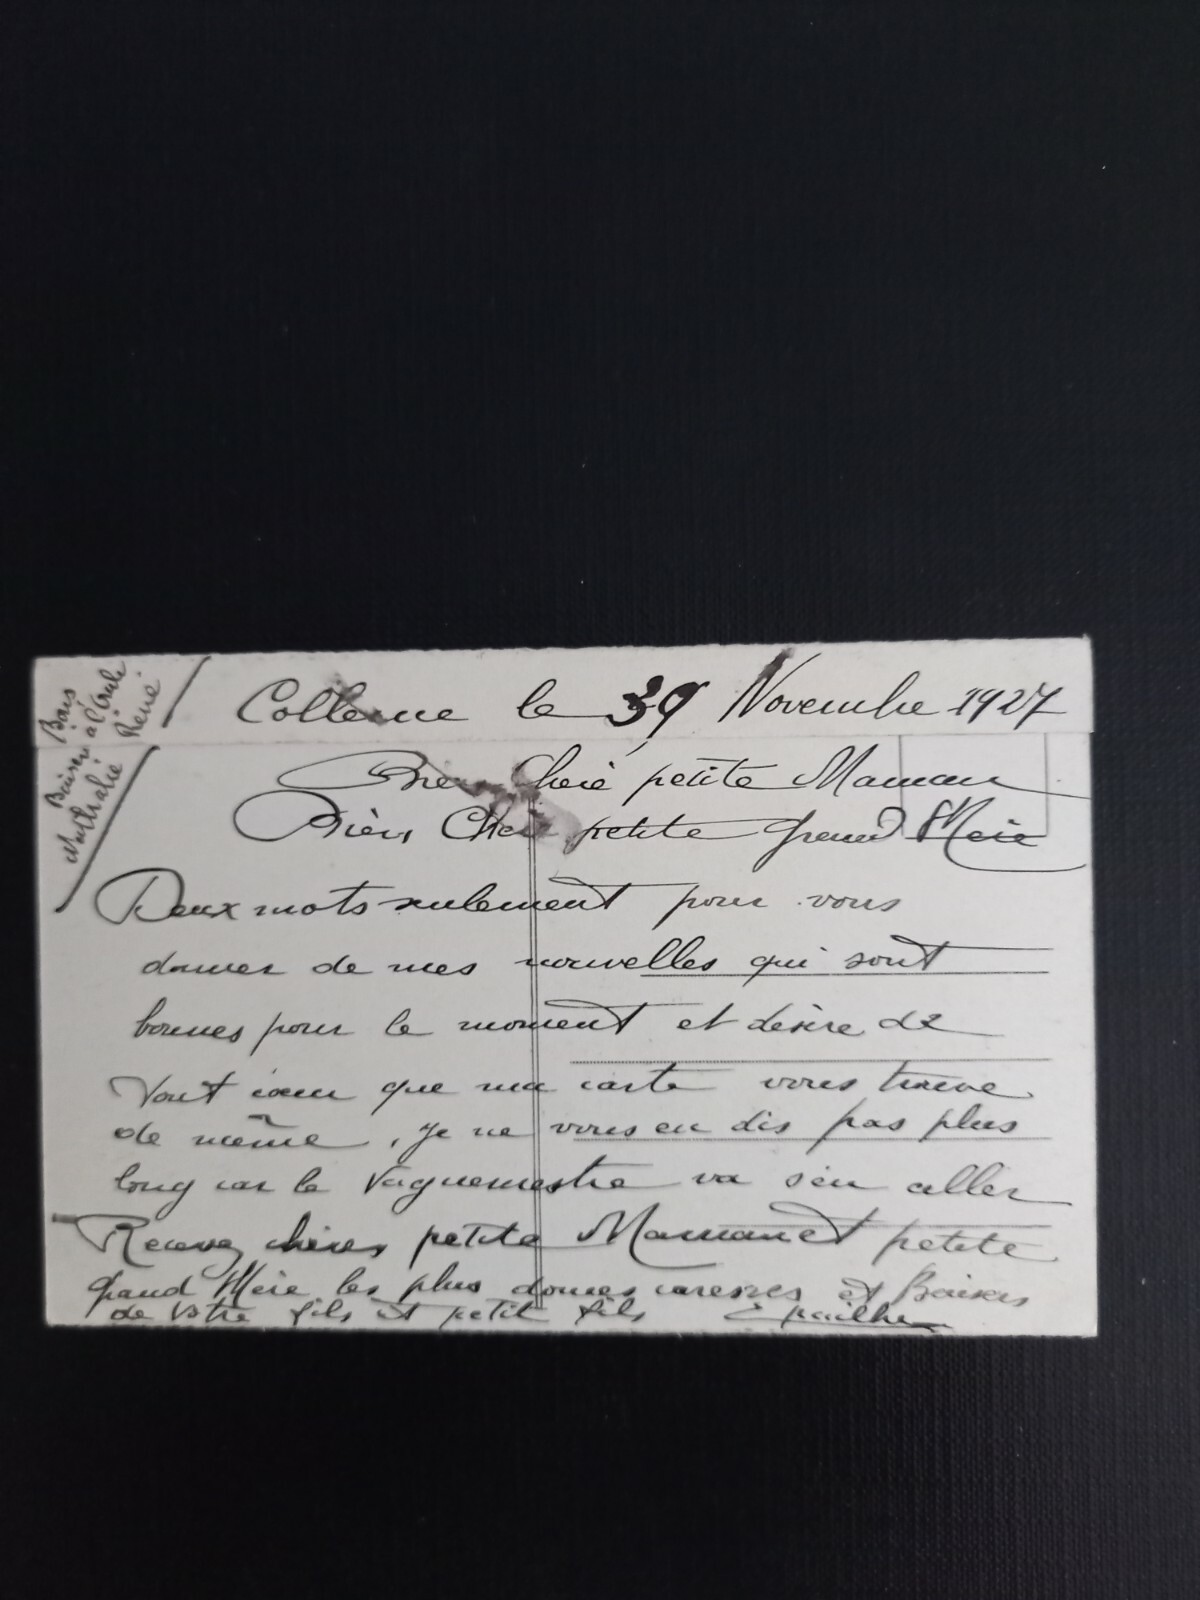 Bons
Baisers à l'Oncle
René
Nathalie
le 39 Novembre 1927
Chère petite Maman
Bien Chère petite Grand Mère
Deux mots seulement pour vous
donner de mes nouvelles qui sont
bonnes pour le moment et désire de
tout cœur que ma carte vous trouve
de même, je ne vous en dis pas plus
long car le Vaguemestre va s'en aller
Recevez chères petite Maman et petite
Grand Mère les plus douces caresses et Baisers
de votre fils et petit fils